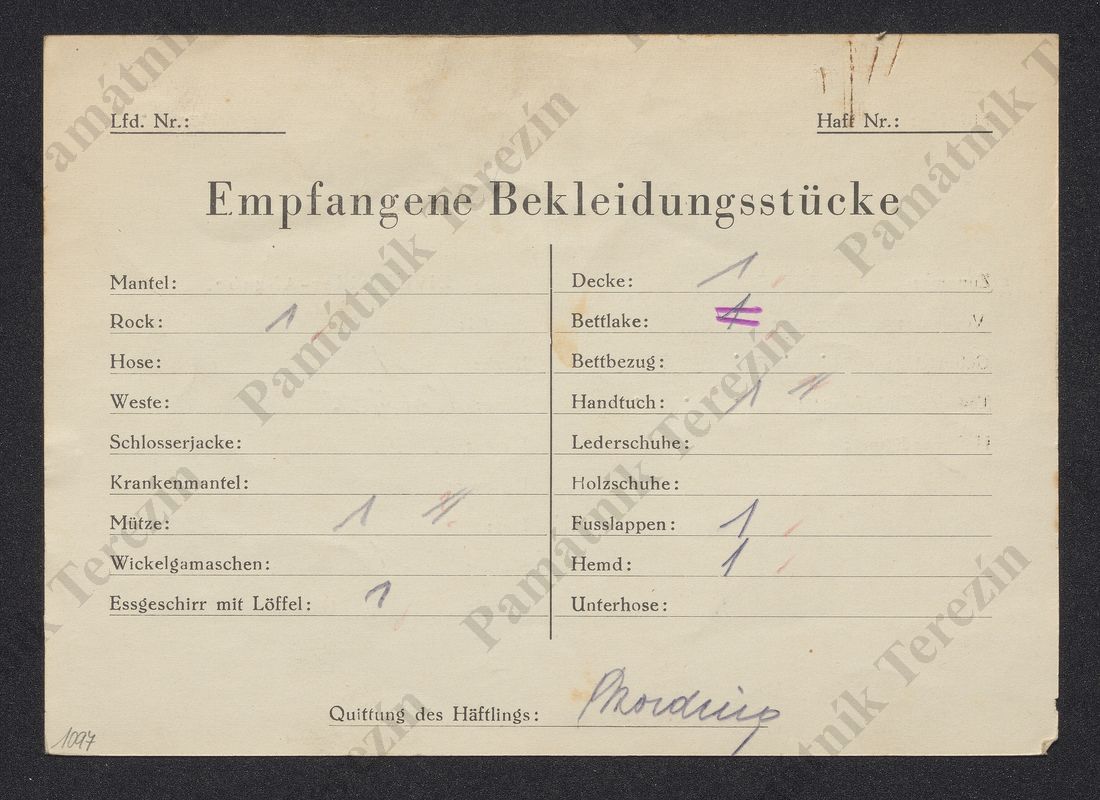 Lfd. Nr.:
Haft Nr.:
Empfangene Bekleidungsstücke
Mantel:
Rock: 1
Hose:
Weste:
Schlosserjacke:
Krankenmantel:
Mütze: 1
Wickelgamaschen:
Essgeschirr mit Löffel: 1
Decke: 1
Bettlake: 1
Bettbezug:
Handtuch: 1
Lederschuhe:
Holzschuhe:
Fusslappen: 1
Hemd: 1
Unterhose:
Quittung des Häftlings:
1097
Památník Terezín
Památník Terezín
Památník Terezín
Památník Terezín